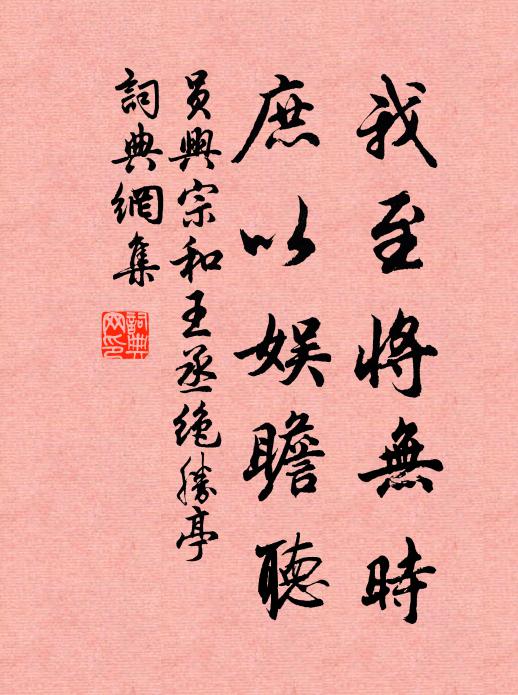 我至將無時
庶以娛瞻聽
員興宗和王丞絶勝亭
詞典網集
詞典
网印